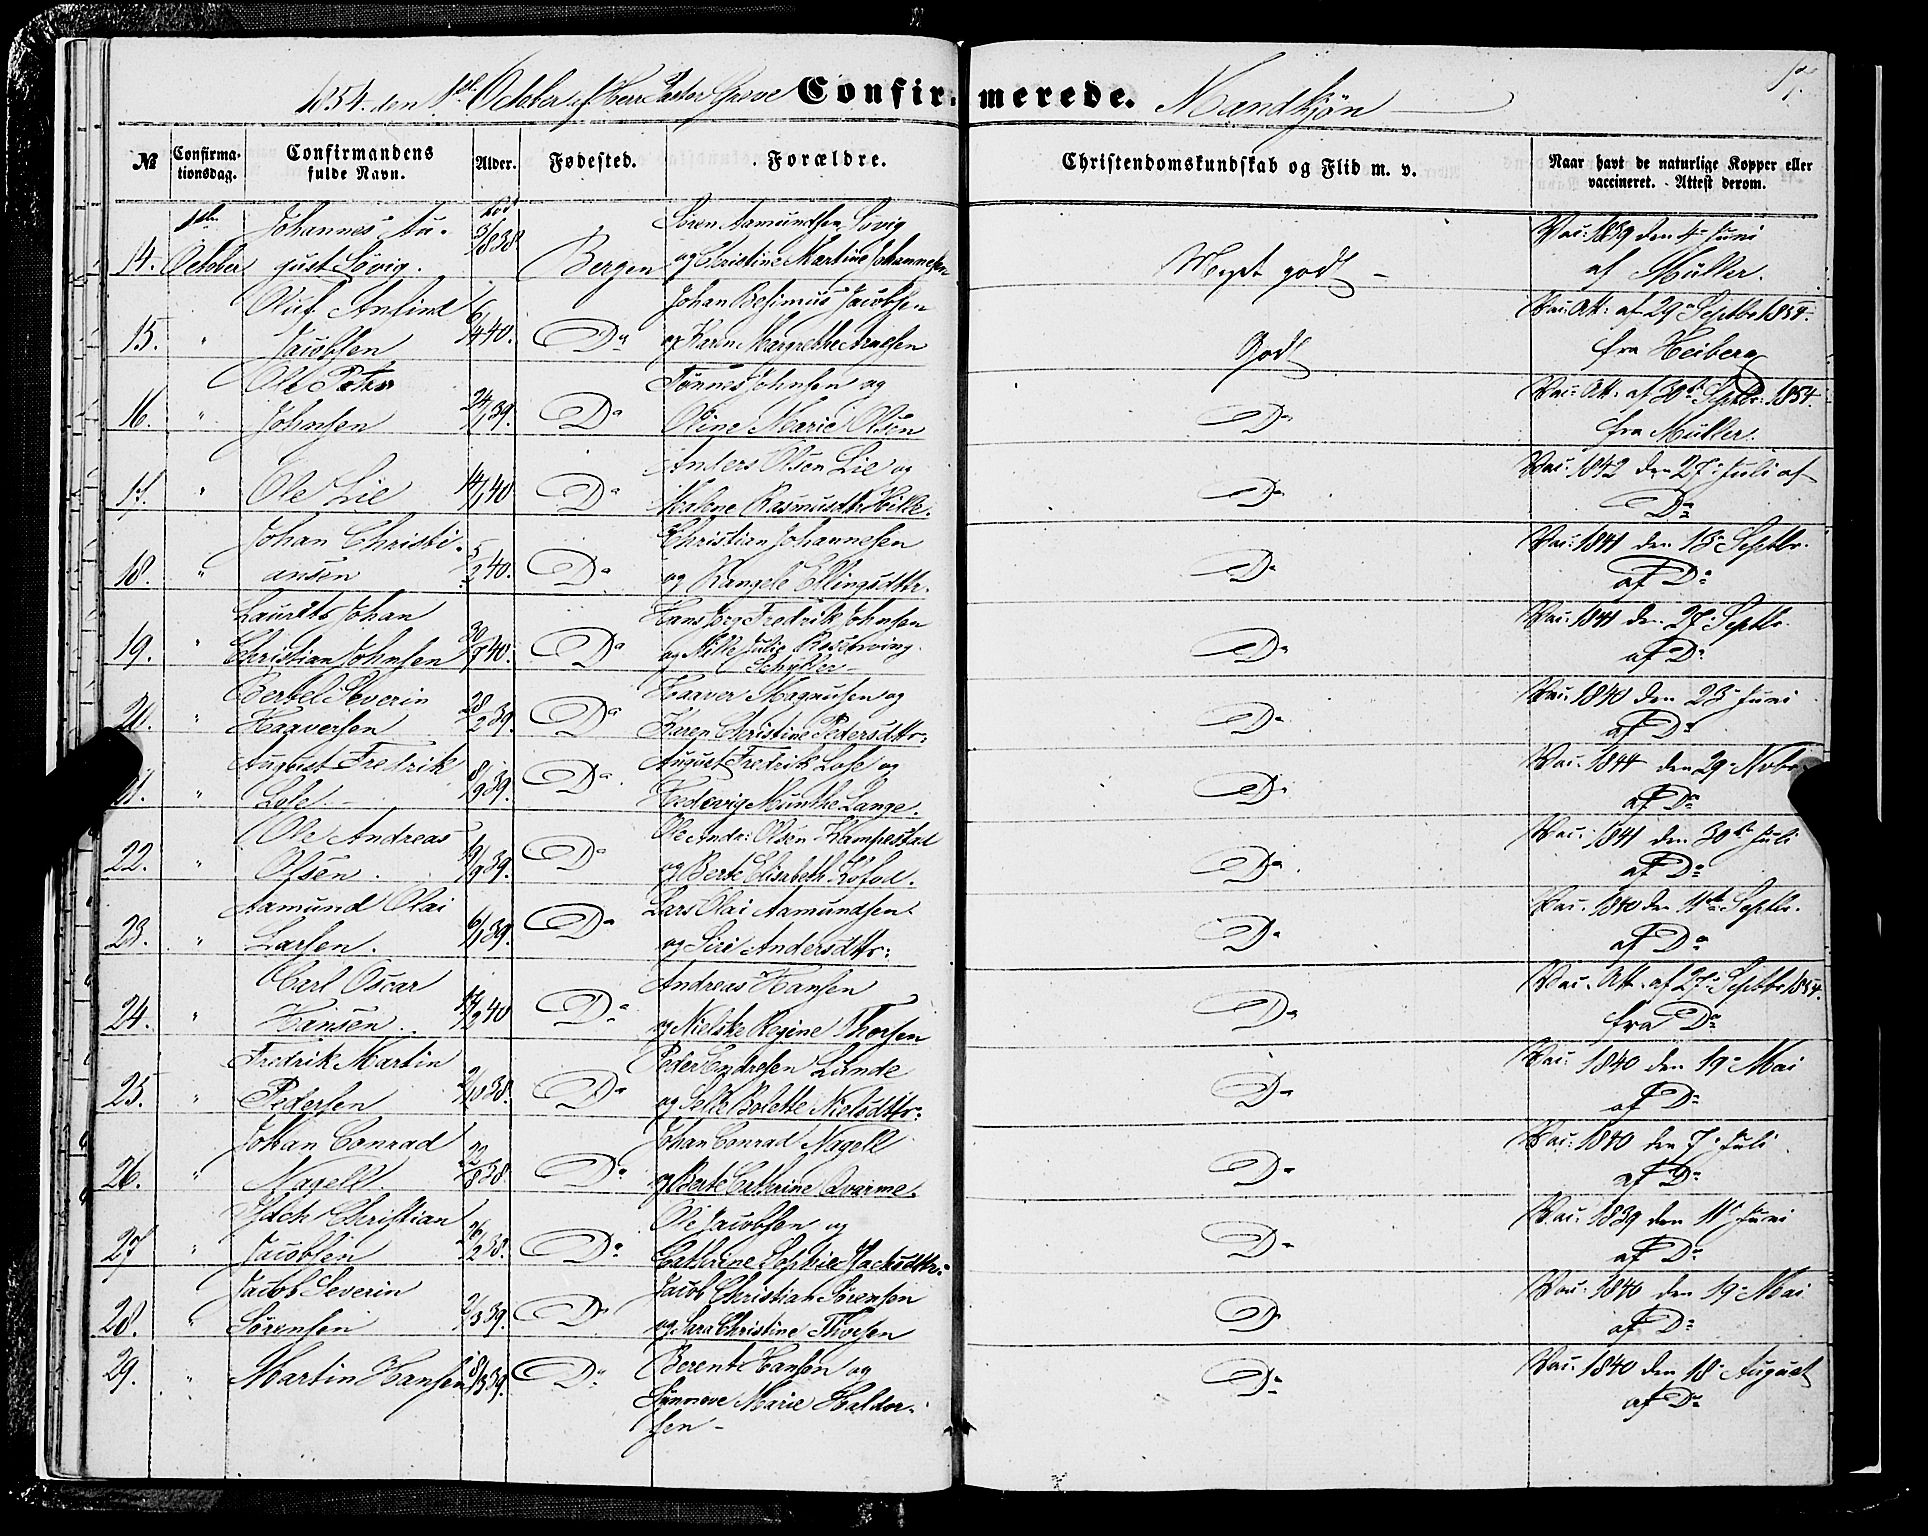 1854. den 1ste October af Herr Pastor Greve Confirmerede. Mandkjøn
№ Confirmationsdag. Confirmandens fulde Navn. Alder. Fødested. Forældre. Christendomskundskab og Flid m. v. Naar havt de naturlige Kopper eller vaccineret. Attest derom.
1ste Johannes Au- Søren Aamundsen Søvig Vac: 1839 den 4 Juni
14. October gust Søvig. 3/8 38 Bergen og Christine Martine Johannesen Meget godt - af Müller.
Oluf Anfind Johan Jacobsen Vac: Att: af 29 Septbr 1854.
15. " Jacobsen 6/4 40. Do og Karen Margrethe Godt fra Heiberg
Ole Peter Tønnes Johnsen og Vac: Att. af 30 Septbr. 1854.
16. " Johnsen 24/1 39. Do Oline Marie Olsen Do fra Müller.
Anders Olsen Lie og Vac. 1842 den 27 Juli af
17. " Ole Lie 14/1 40 Do Malene Rasmusdtr Hille. Do Do
Johan Christi- Christian Johannesen Vac: 1841 den 13 Septbr.
18. " ansen 5/2 40. Do og Rangele Ellingsdttr. Do af Do
Laurits Johan Hans Jørg Fredrik Johnsen Vac: 1841 den 27 Septbr.
19. " Christian Johnsen 30/1 40. Do og Mille Julie Do af Do
Bertel Severin Haaver Magnusen og Vac: 1840 den 23 Juni
20. " Haaversen 28/2 39. Do Karen Christine Pedersdttr: Do af Do
August Fredrik August Fredrik Lose og Vac. 1844 den 29 Nvbr.
21. " Lose. 8/9 39. Do Hedevig Munthe Lange. Do af Do
Ole Andreas Ole Andr: Olsen Hampestad Vac: 1841 den 30te Juli
22. " Olsen. 9/9 39. Do og Berte Elisabeth Kofod. Do af Do
Aamund Olai Lars Olai Aamundsen Vac. 1840 den 11te Septbr.
23. " Larsen. 6/1 39. Do og Siri Andersdttr: Do af Do
Carl Oscar Andreas Hansen Vac. Att. af 27 Septbr 1854.
24. " Hansen. 17/2 40 Do og Nielske Regine Thorsen Do fra Do
Fredrik Martin Peder Endresen Lunde Vac: 1840 den 19 Mai
25. " Pedersen 2/10 38. Do og Selle Bolette Nielsdttr: Do af Do
Johan Conrad Johan Conrad Nagell Vac: 1840 den 7 Juli
26. " Nagell. 22/8 38. Do og Berte Cathrine Qvarme. Do af Do
Christian Ole Jacobsen og Vac. 1839 den 11 Juni
27 " Jacobsen 26/2 38. Do Cathrine Sophie Do af Do
Jacob Severin Jacob Christian Sørensen Vac: 1840 den 19 Mai
28. " Sørensen 2/3 39. Do og Sara Christine Thorsen Do af Do
29. " Martin Hansen 8/3 39. Do Berent Hansen og Do Vac. 1840 den 18 August
Synneve Marie Haldor- af Do
sen -